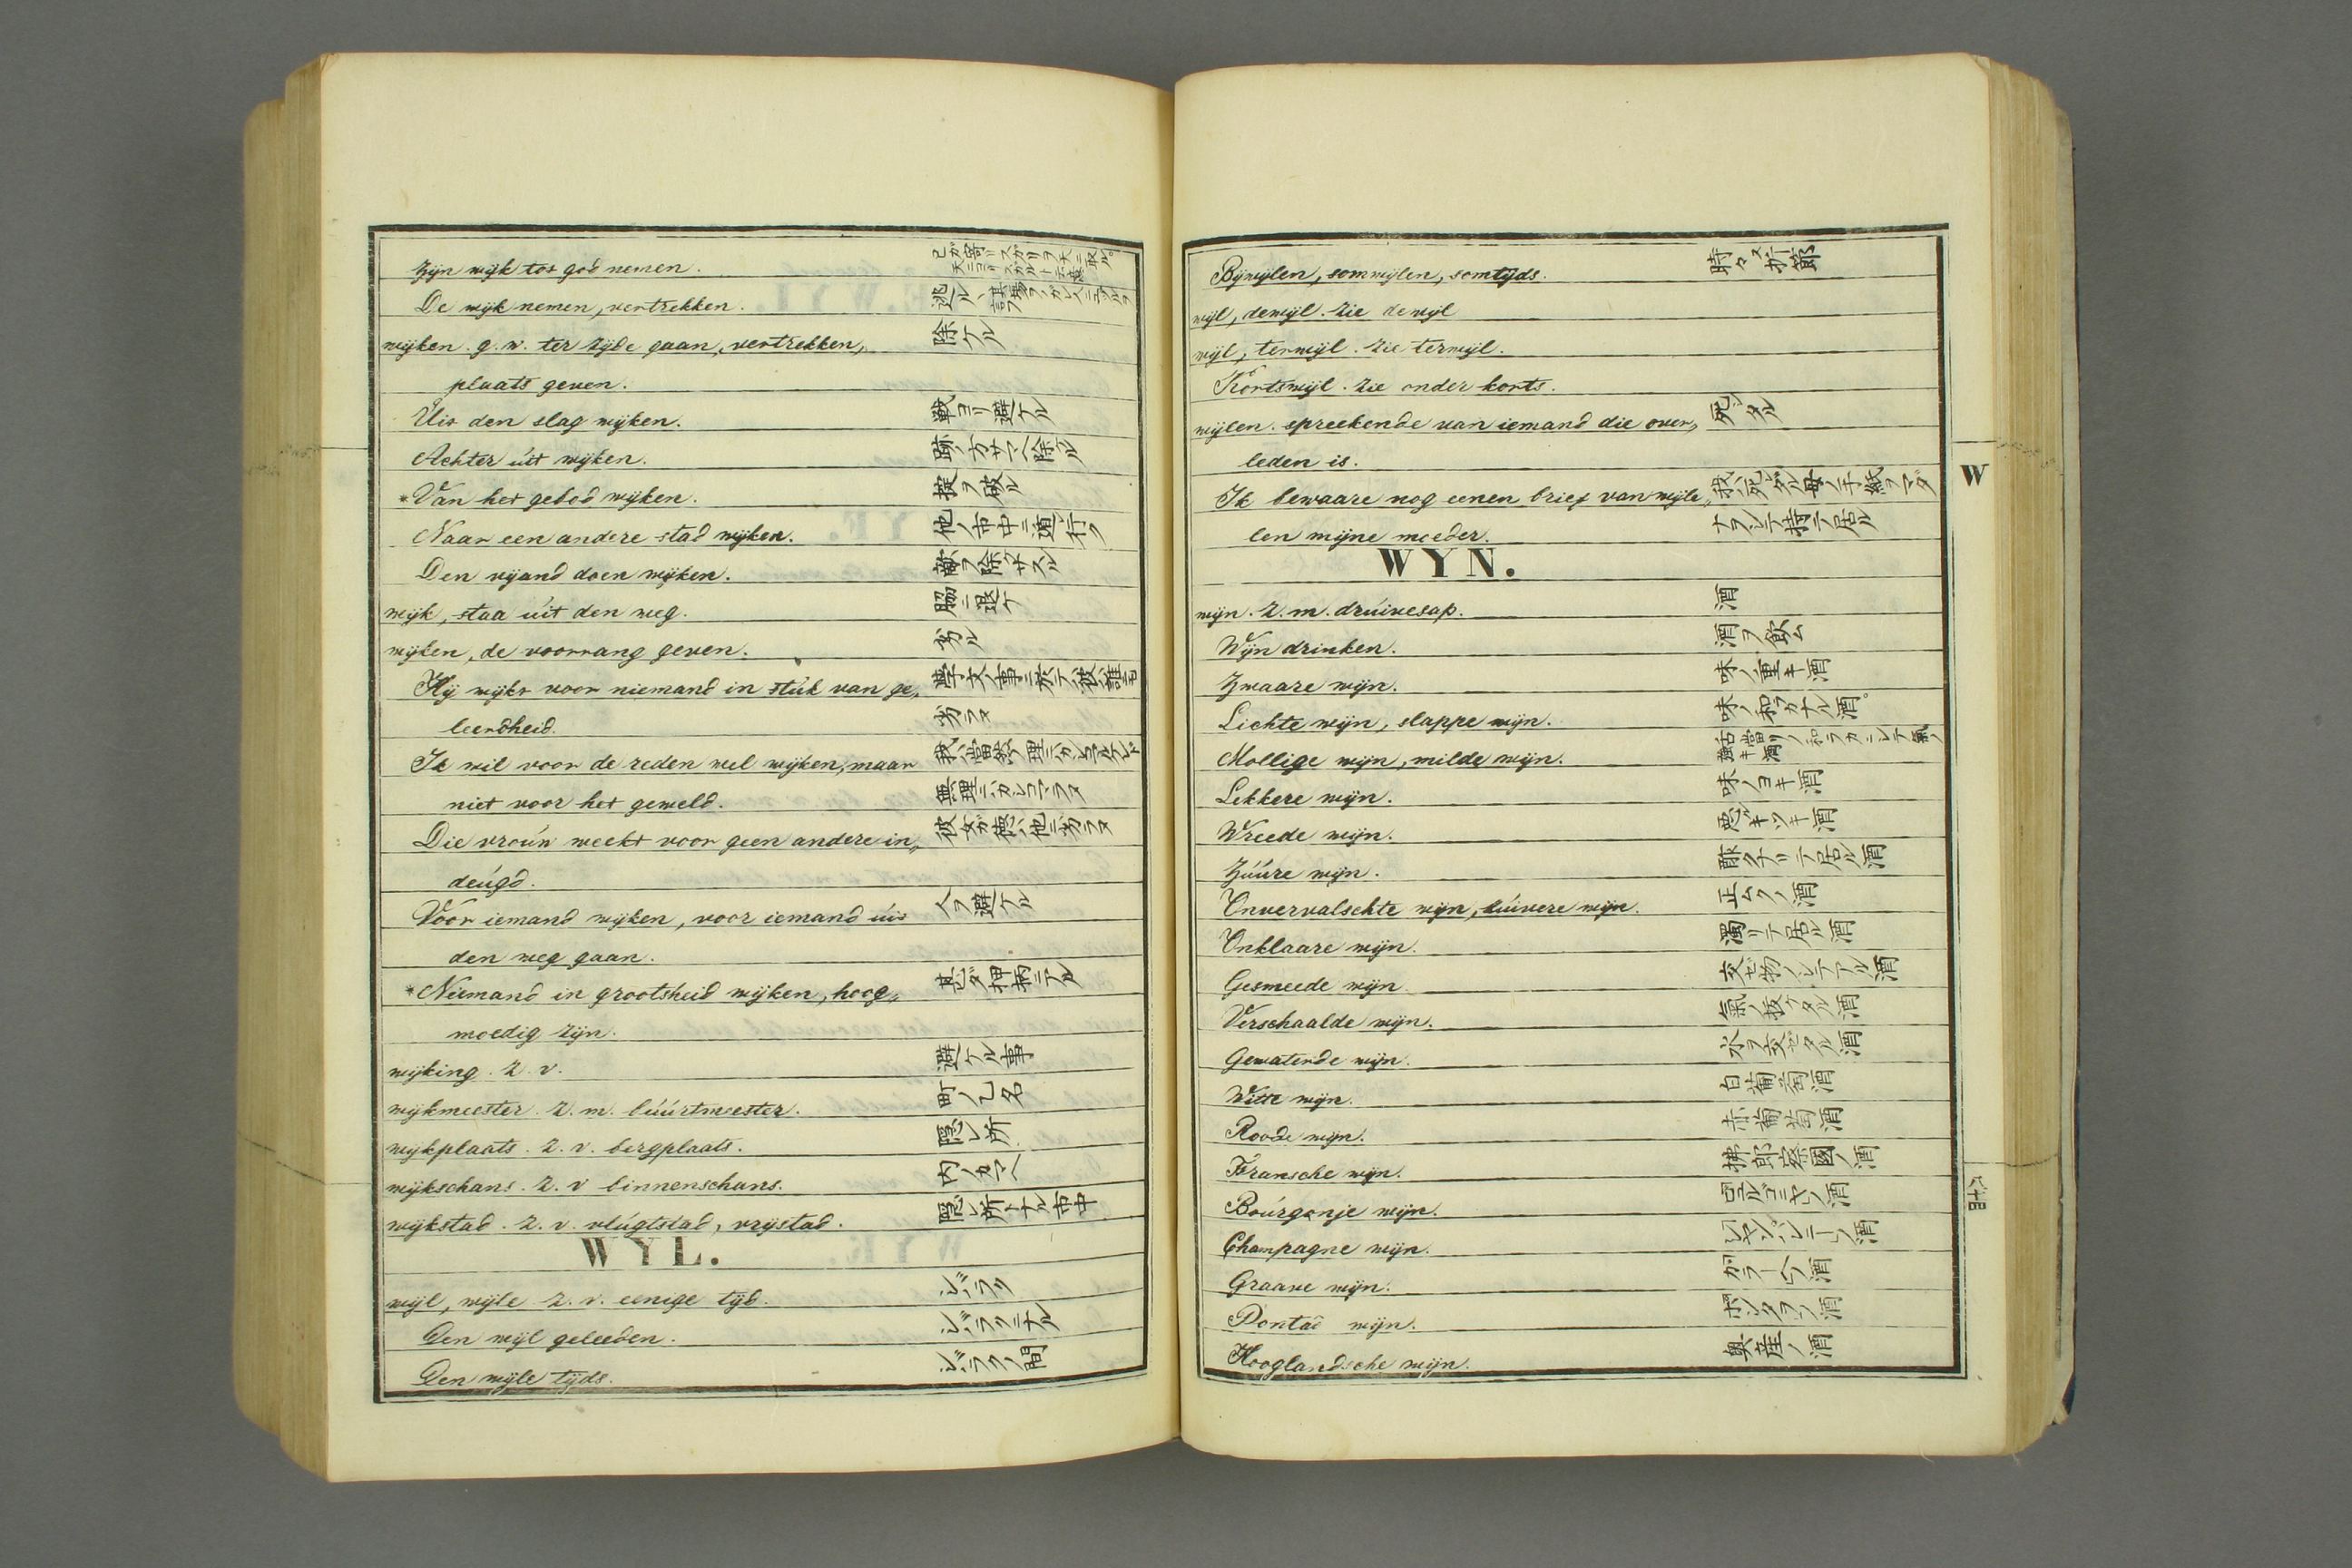 Zijn wijk tot god nemen.
De wijk nemen, vertrekken. 逃ル、
wijken. g. w. ter zijde gaan, vertrekken, 除ケル
plaats geven.
Uit den slag wijken. 戦ヨリ避ケル
Achter úit wijken. 除ル
*Van het gebod wijken. 掟ヲ破ル
Naar een andere stad wijken. 他ノ市中ニ
Den vijand doen wijken. 敵ヲ除ケサスル
wijk, staa úit den weg. 脇ニ退ケ
wijken, de voorrang geven. 劣ル
Hij wijkt voor niemand in stúk van ge„ 學文ノ事ニ於テ彼誰ニモ
leerdheid. 劣ラヌ
Ik wil voor de reden wel wijken, maar
niet voor het geweld.
Die vroúw weekt voor geen andere in„ 彼女ガ徳ハ他ニ劣ラヌ
deúgd.
Voor iemand wijken, voor iemand úit 人ヲ避ケル
den weg gaan.
*Niemand in grootsheid wijken, hoog„
moedig zijn.
wijking. z. v. 避ケル事
wijkmeester. z. m. búúrtmeester. 町ノ乙名
wijkplaats. z. v. bergplaats. 隠レ所
wijkschans. z. v binnenschans.
wijkstad. z. v. vlúgtstad, vrijstad. 隠レ所トナル市中
WYL.
wijl, wijle z. v. eenige tijd. シバラク
Een wijl geleeden.
Een wijle tijds. シバラクノ間
Bijwijlen, somwijlen, somtijds. 時々
wijl, dewijl. zie dewijl
wijl, terwijl. zie terwijl.
Kortswijl. zie onder korts.
wijlen. spreekende van iemand die over„ 死シタル
leden is.
Ik bewaare nog eenen brief van wijle„ 我ハ死シタル母ノ手紙ヲマダ
len mijne moeder. 持テ居ル
W
WYN.
wijn. z. m. drúivesap. 酒
Wijn drinken. 酒ヲ飲ム
Zwaare wijn. 味ノ重キ酒
Lichte wijn, slappe wijn. 味ノ和ラカナル酒
Mollige wijn, milde wijn. 舌當リノ和ラカニシテ氣ノ強キ酒
Lekkere wijn. 味ノヨキ酒
Wreede wijn.
Zúúre wijn. 酢クナリテ居ル酒
Onvervalschte wijn, zúivere wijn. 正ムクノ酒
Onklaare wijn. 濁リテ居ル酒
Gesmeede wijn. 交ゼ物ノシテアル酒
Verschaalde wijn. 氣ノ抜ケタル酒
Gewaterde wijn. 水ヲ交ゼタル酒
Witte wijn. 白葡萄酒
Roode wijn. 赤葡萄酒
Fransche wijn. 拂郎察國ノ酒
Boúrgonje wijn.
Champagne wijn.
Graave wijn.
Pontac wijn. ポンタクノ酒
Hooglandsche wijn. 奥産ノ酒